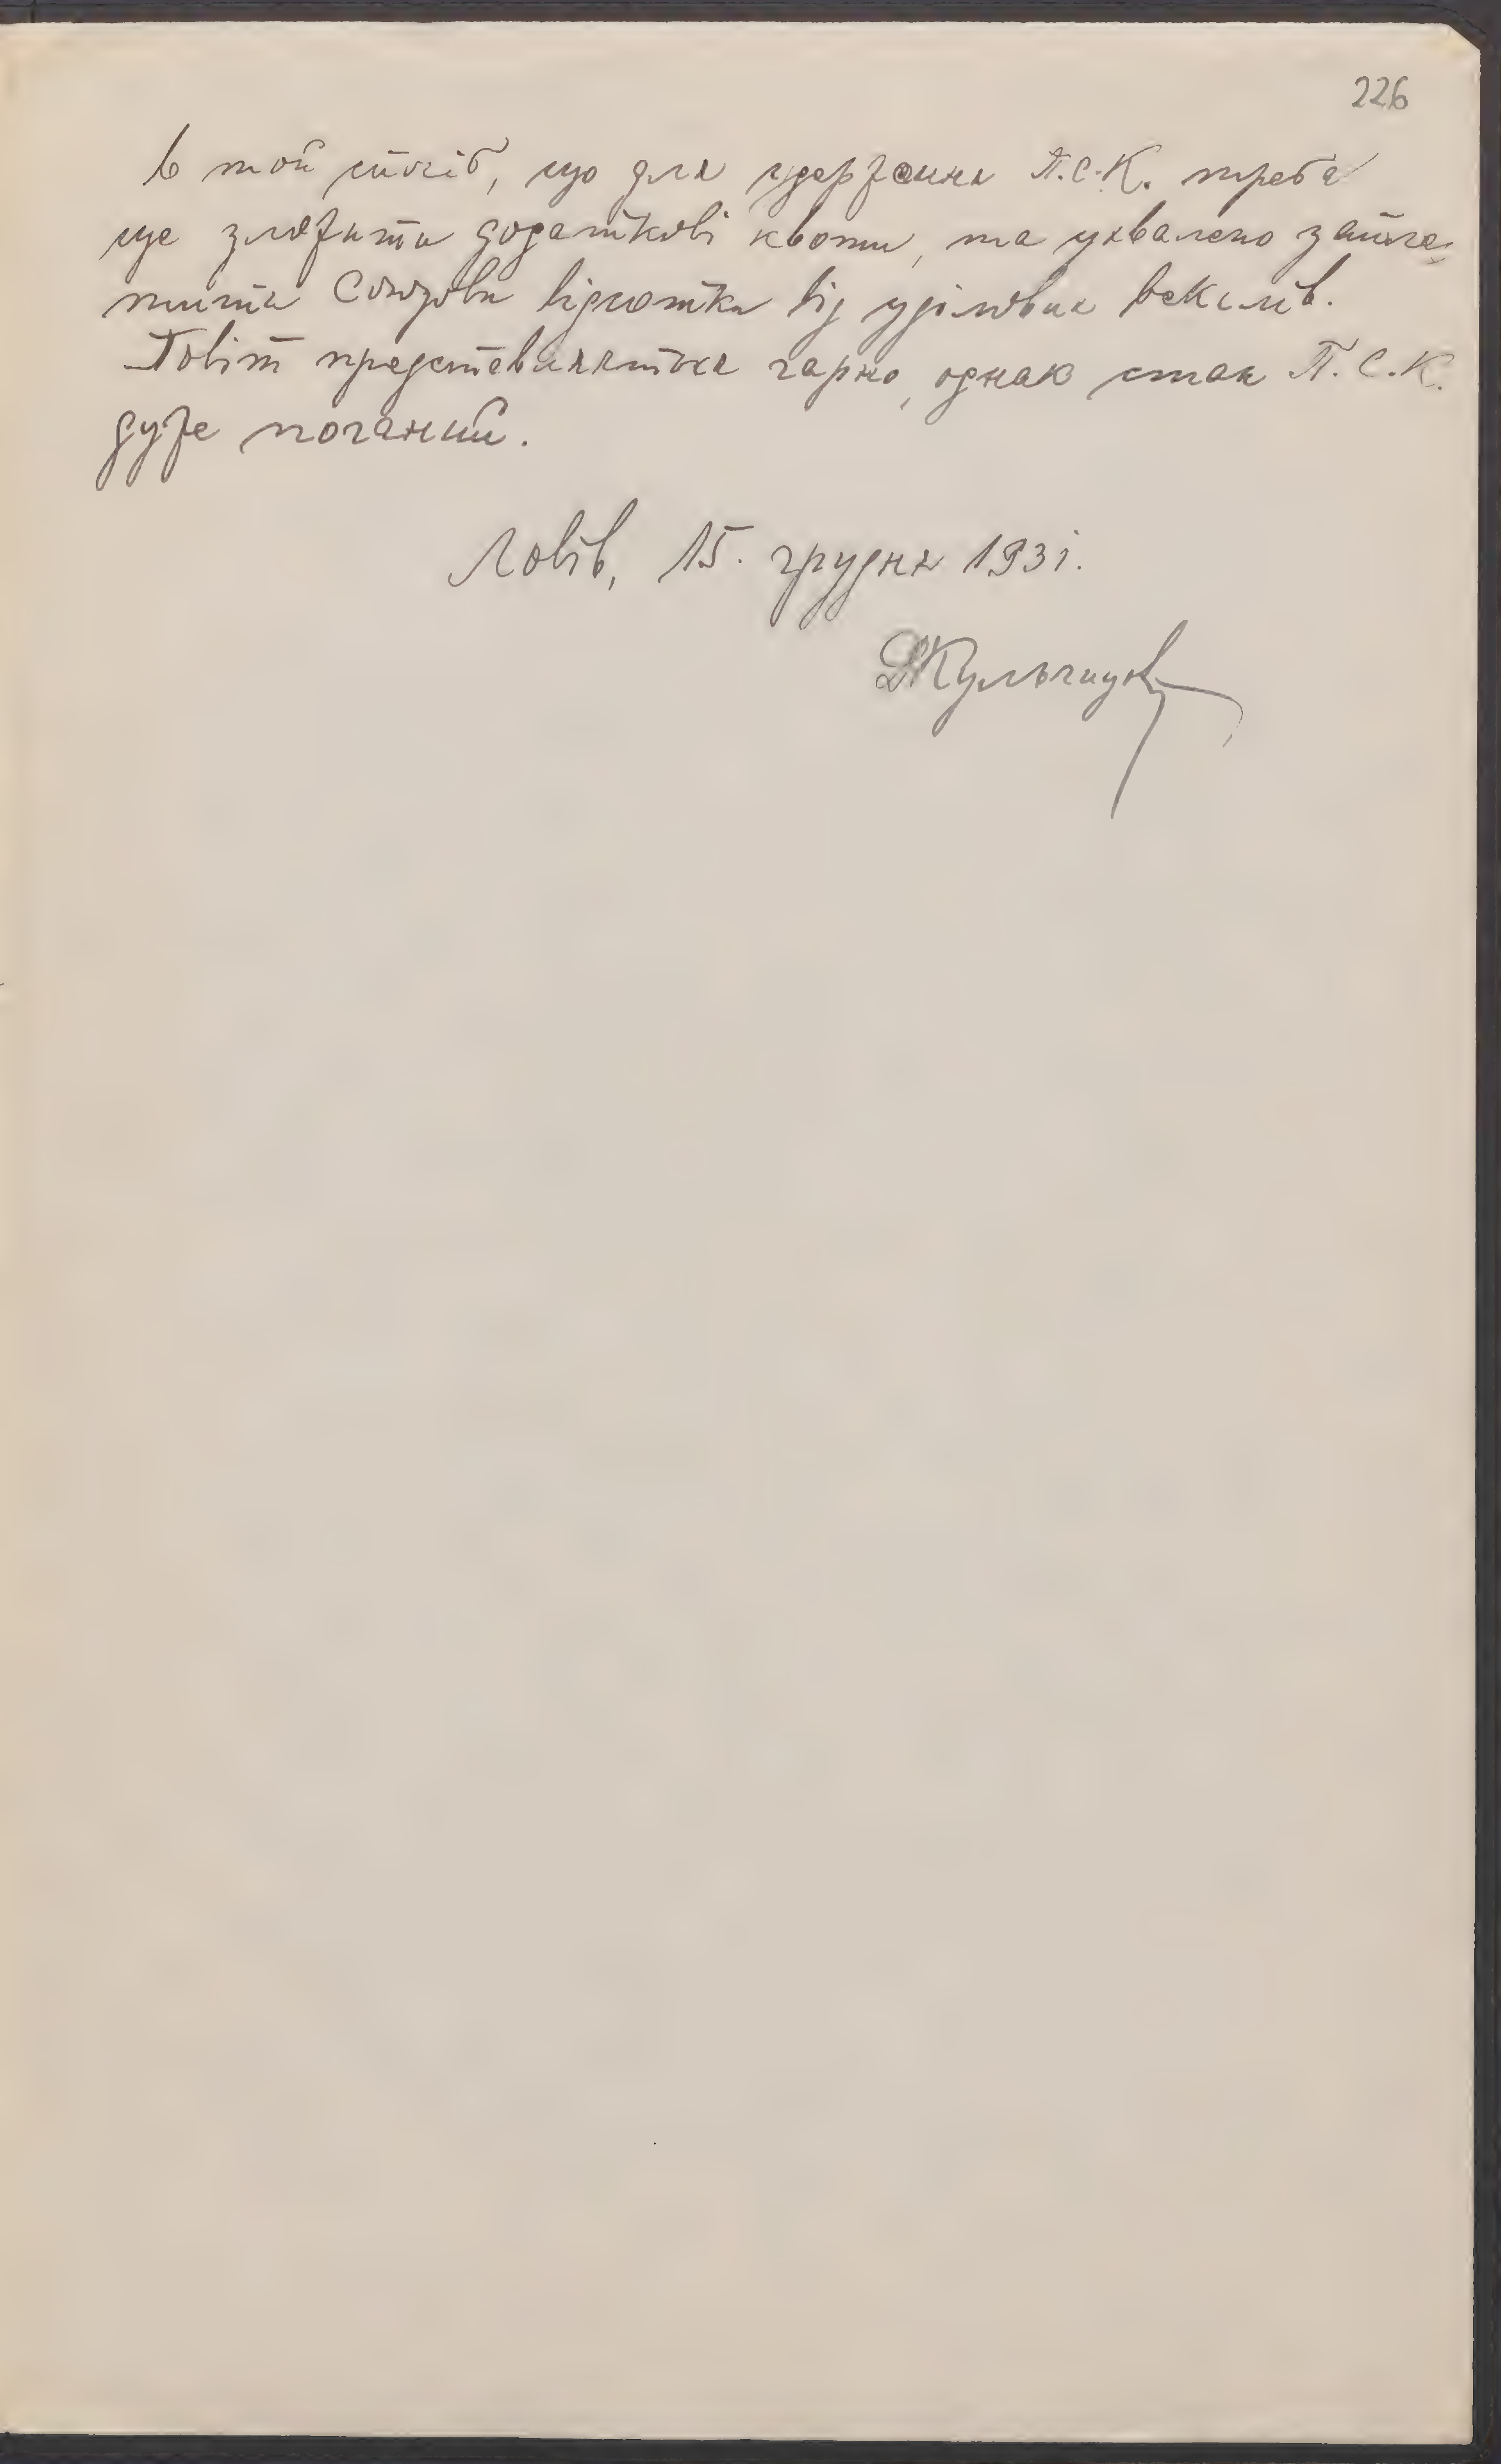 226
в той спосіб, що для удержання П.С.К. треба
ще зложити додаткові квоти, та ухвалено запла-
тити Союзови відсотки від уділових векслів.
Повіт представляється гарно, однак стан П.С.К.
дуже поганий.
Львів, 15. грудня 1931.